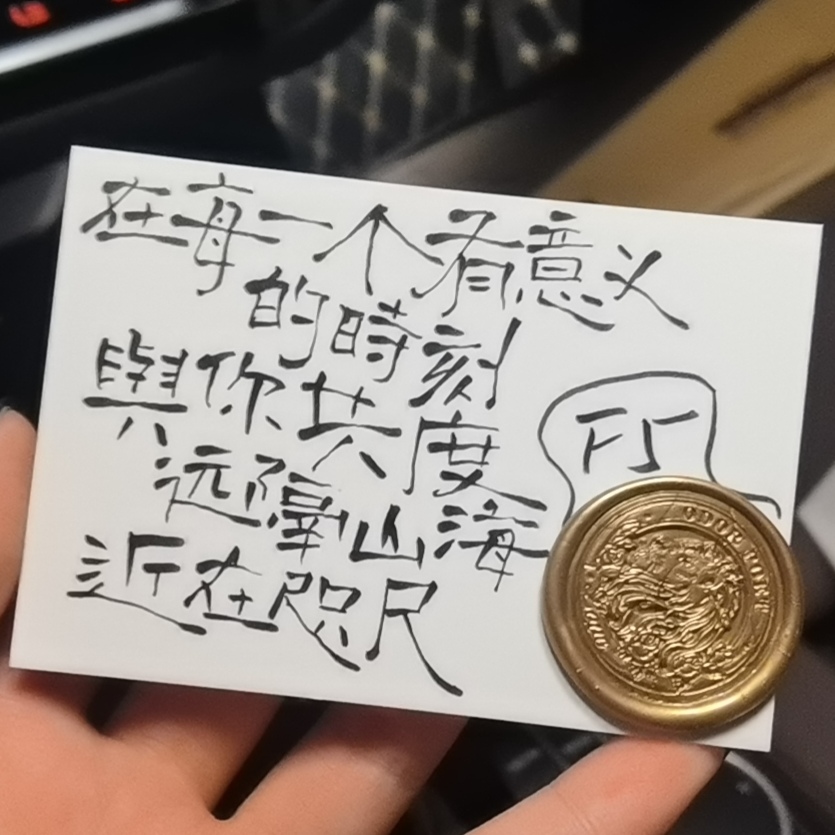 在每一个有意义
的時刻
與你共度
远隔山海
近在咫尺
FS
ODOR FORT